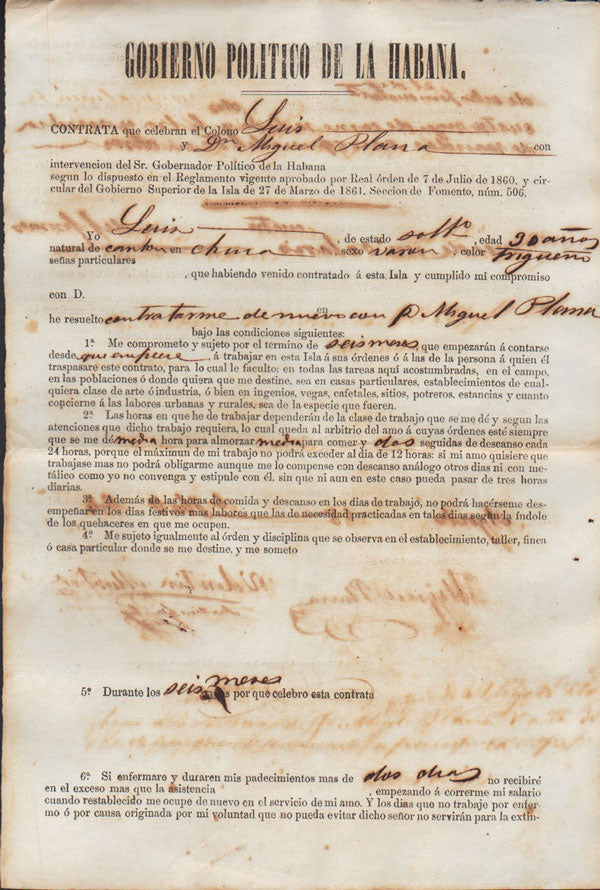 GOBIERNO POLITICO DE LA HABANA.
CONTRATA que celebran el Colono Luis
y Dn Miguel Plana con
intervencion del Sr. Gobernador Político de la Habana
segun lo dispuesto en el Reglamento vigente aprobado por Real órden de 7 de Julio de 1860, y cir-
cular del Gobierno Superior de la Isla de 27 de Marzo de 1861, Seccion de Fomento, núm. 506,
Yo Luis , de estado soltº , edad 30 años
natural de canton en china , sexo varon , color trigueño
señas particulares
, que habiendo venido contratado á esta Isla y cumplido mi compromiso
con D. en
he resuelto contratarme de nuevo con D Miguel Plana
bajo las condiciones siguientes:
1ª Me comprometo y sujeto por el termino de seis meses, que empezarán á contarse
desde que empiece , á trabajar en esta Isla á sus órdenes ó á las de la persona á quien él
traspasare este contrato, para lo cual le faculto: en todas las tareas aquí acostumbradas, en el campo,
en las poblaciones ó donde quiera que me destine, sea en casas particulares, establecimentos de cual-
quiera clase de arte ó industria, ó bien en ingenios, vegas, cafetales, sitios, potreros, estancias y cuanto
concierne á las labores urbanas y rurales, sea de la especie que fueren.
2ª Las horas en que he de trabajar dependerán de la clase de trabajo que se me dé y segun las
atenciones que dicho trabajo requiera, lo cual queda al arbitrio del amo á cuyas órdenes esté siempre
que se me dé media hora para almorzar media para comer y dos seguidas de descanso cada
24 horas, porque el máximun de mi trabajo no podrá exceder al dia de 12 horas: si mi amo quisiere que
trabajase mas no podrá obligarme aunque me lo compense con descanso análogo otros dias ni con me-
tálico como yo no convenga y estipule con él, sin que ni aun en este caso pueda pasar de tres horas
diarias.
3ª Además de las horas de comida y descanso en los dias de trabajo, no podrá hacérseme des-
empeñar en los dias festivos mas labores que las de necesidad practicadas en tales dias segun la índole
de los quehaceres en que me ocupen.
4ª Me sujeto igualmente al órden y disciplina que se observa en el establecimiento, taller, finca
ó casa particular donde se me destine, y me someto
5ª Durante los seis meses por que celebro esta contrata
6ª Si enfermare y duraren mis padecimientos mas de dos dias no recibiré
en el exceso mas que la asistencia , empezando á correrme mi salario
cuando restablecido me ocupe de nuevo en el servicio de mi amo. Y los dias que no trabaje por enfer-
mo ó por causa originada por mi voluntad que no pueda evitar dicho señor no servirán para la extin-